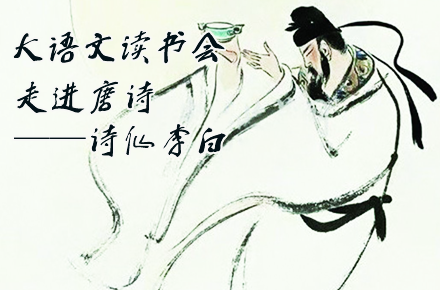 大语文读书会
走进唐诗
——诗仙李白